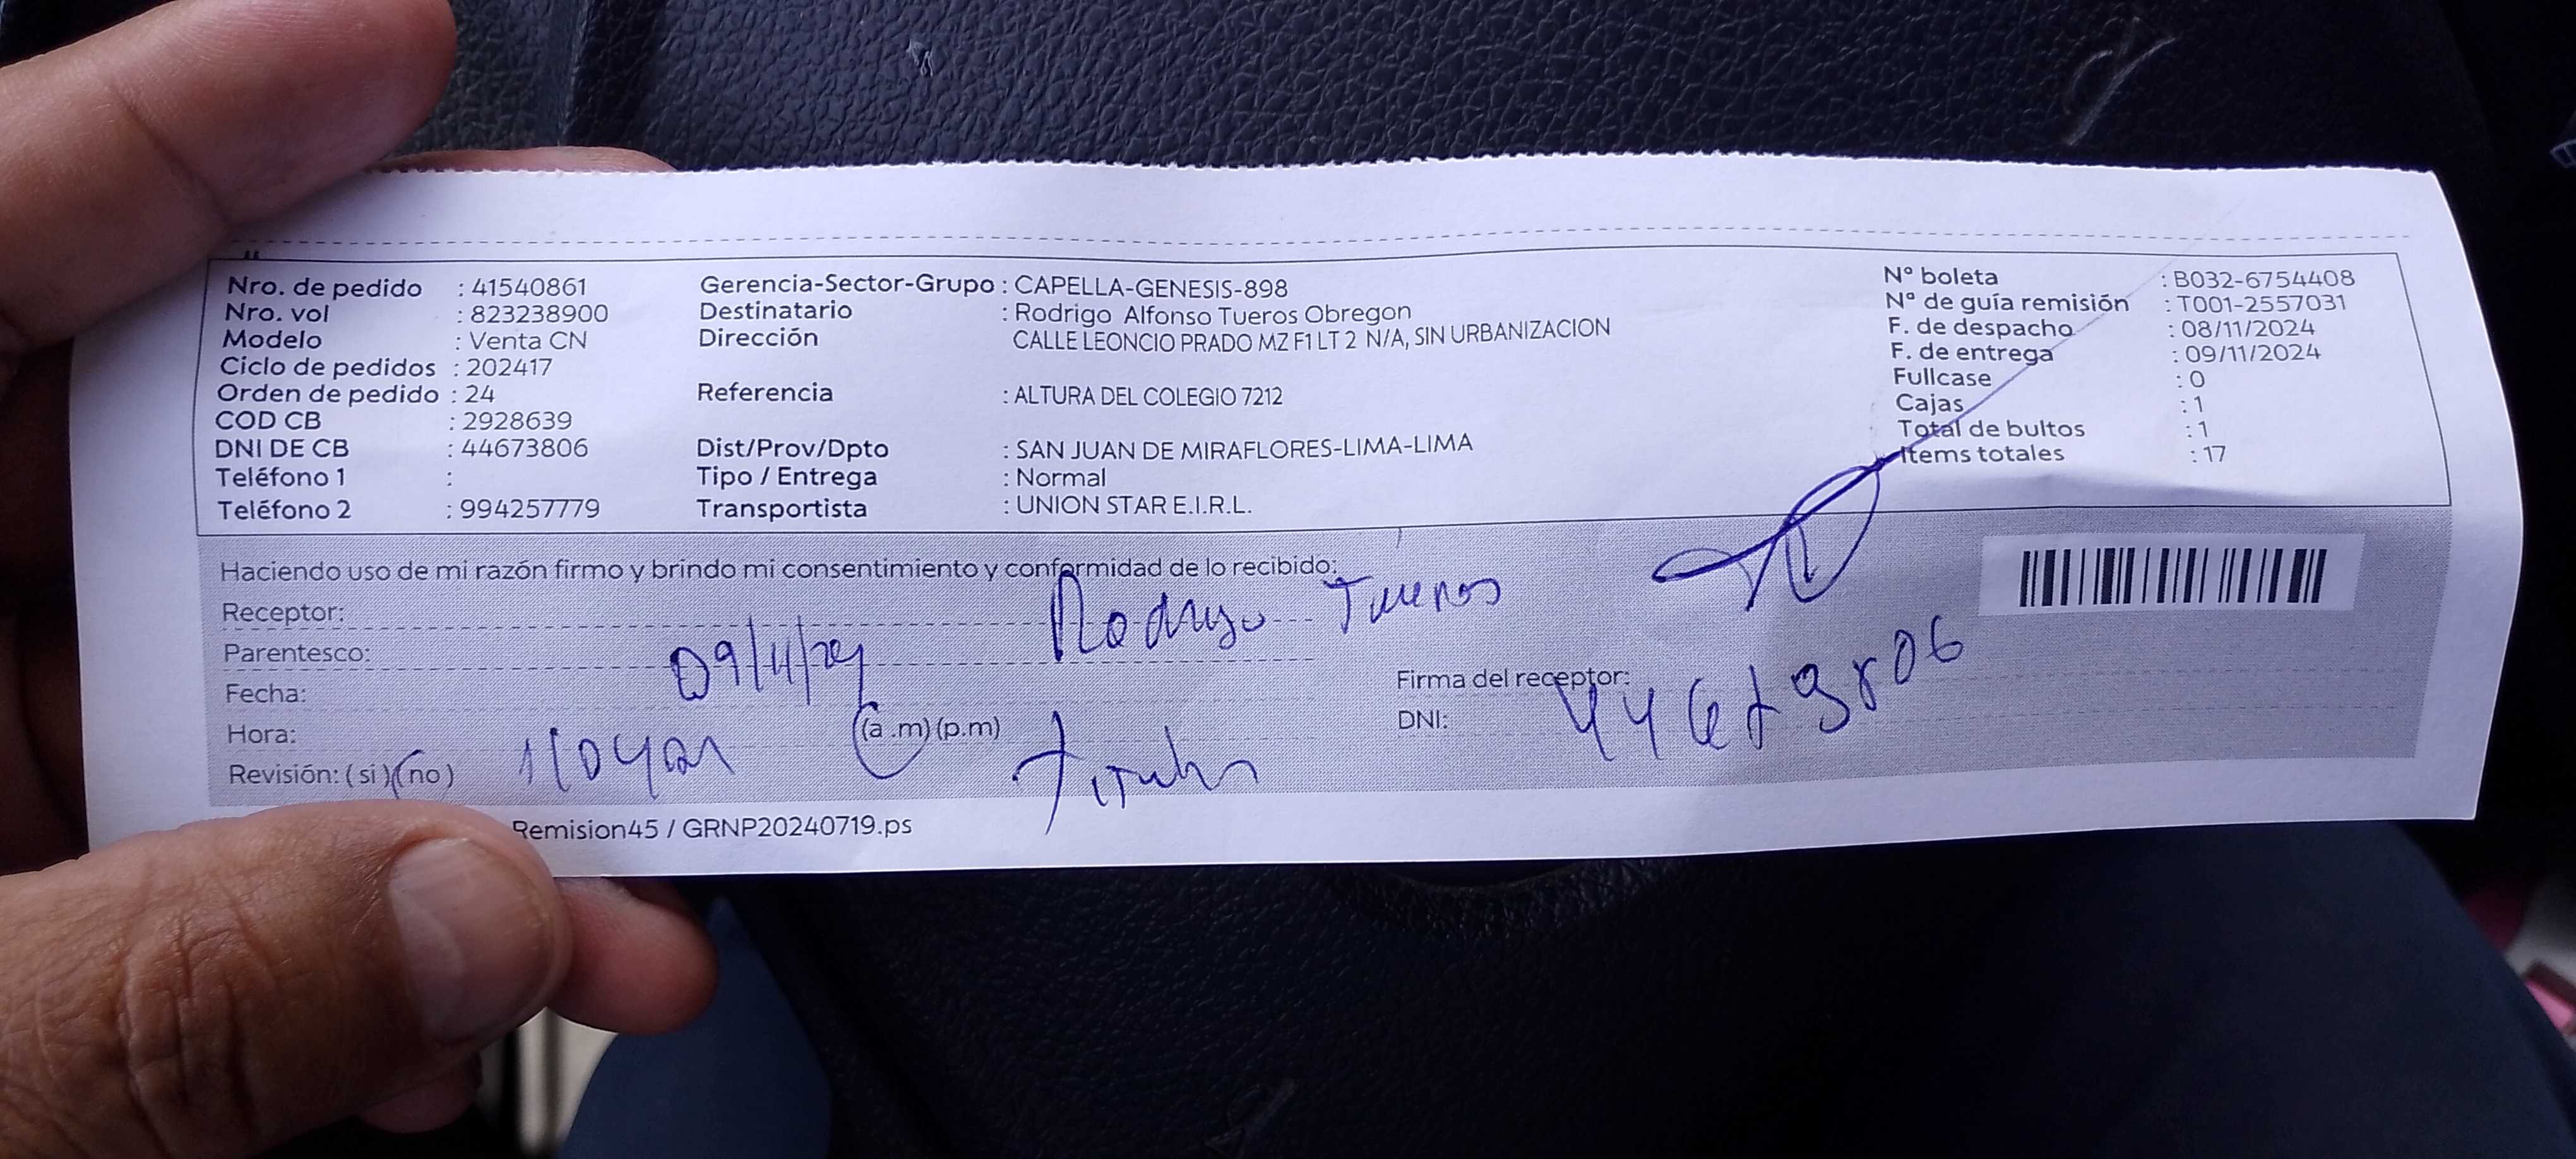 Nro. de pedido : 41540861
Nro. vol : 823238900
Modelo : Venta CN
Ciclo de pedidos : 202417
Orden de pedido : 24
COD CB : 2928639
DNI DE CB : 44673806
Teléfono 1 :
Teléfono 2 : 994257779
Gerencia-Sector-Grupo : CAPELLA-GENESIS-898
Destinatario : Rodrigo Alfonso Tueros Obregon
Dirección CALLE LEONCIO PRADO MZ F1 LT 2 N/A, SIN URBANIZACION
Referencia : ALTURA DEL COLEGIO 7212
Dist/Prov/Dpto : SAN JUAN DE MIRAFLORES-LIMA-LIMA
Tipo / Entrega : Normal
Transportista : UNION STAR E.I.R.L.
Nº boleta : B032-6754408
Nº de guía remisión : T001-2557031
F. de despacho : 08/11/2024
F. de entrega : 09/11/2024
Fullcase : 0
Cajas : 1
Total de bultos : 1
Items totales : 17
Haciendo uso de mi razón firmo y brindo mi consentimiento y conformidad de lo recibido:
Receptor: Rodrigo Tueros
Parentesco:
Fecha: 09/11/24
Hora: (a .m) (p.m)
Revisión: (si) (no)
Titular
Firma del receptor:
DNI: 44673806
Remision45 / GRNP20240719.ps